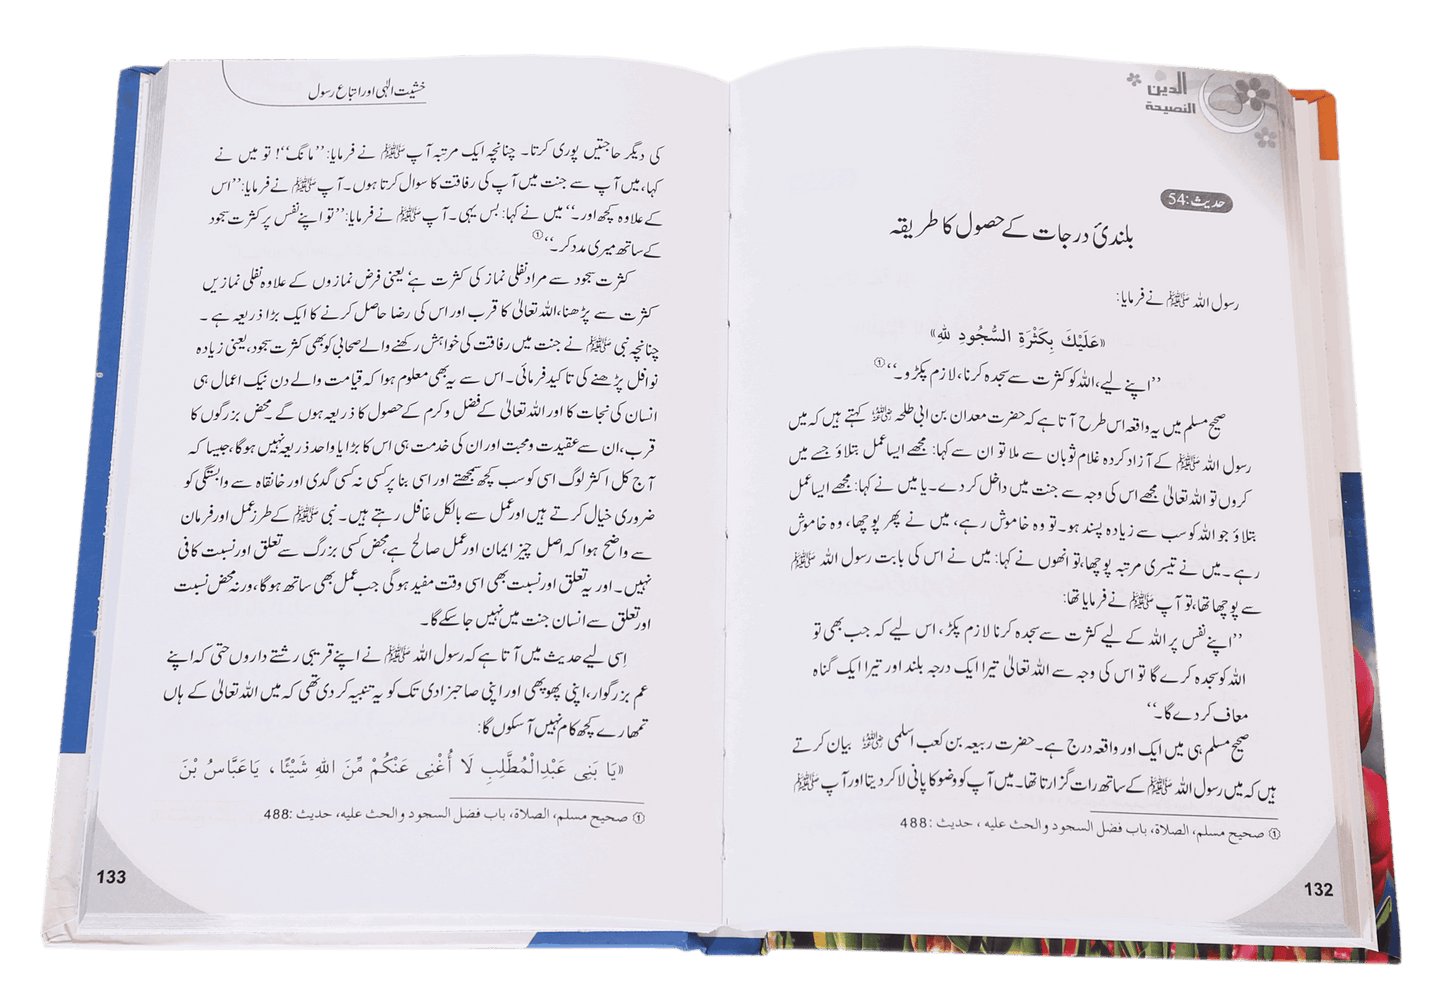 الدین
النصیحة
حدیث:54
بلندیٔ درجات کے حصول کا طریقہ
رسول اللہ ﷺ نے فرمایا:
«عَلَيْكَ بِكَثْرَةِ السُّجُودِ لِلّٰهِ»
’’اپنے لیے، اللہ کو کثرت سے سجدہ کرنا، لازم پکڑو۔‘‘①
صحیح مسلم میں یہ واقعہ اس طرح آتا ہے کہ حضرت معدان بن ابی طلحہ رحمۃ اللہ علیہ کہتے ہیں کہ میں
رسول اللہ ﷺ کے آزاد کردہ غلام ثوبان سے ملا تو ان سے کہا: مجھے ایسا عمل بتلاؤ جسے میں
کروں تو اللہ تعالیٰ مجھے اس کی وجہ سے جنت میں داخل کر دے۔ یا میں نے کہا: مجھے ایسا عمل
بتلاؤ جو اللہ کو سب سے زیادہ پسند ہو۔ تو وہ خاموش رہے، میں نے پھر پوچھا، وہ خاموش
رہے۔ میں نے تیسری مرتبہ پوچھا، تو انھوں نے کہا: میں نے اس کی بابت رسول اللہ ﷺ
سے پوچھا تھا، تو آپ ﷺ نے فرمایا تھا:
’’اپنے نفس پر اللہ کے لیے کثرت سے سجدہ کرنا لازم پکڑ، اس لیے کہ جب بھی تو
اللہ کو سجدہ کرے گا تو اس کی وجہ سے اللہ تعالیٰ تیرا ایک درجہ بلند اور تیرا ایک گناہ
معاف کر دے گا۔‘‘
صحیح مسلم ہی میں ایک اور واقعہ درج ہے۔ حضرت ربیعہ بن کعب اسلمی رضی اللہ عنہ بیان کرتے
ہیں کہ میں رسول اللہ ﷺ کے ساتھ رات گزارتا تھا۔ میں آپ کو وضو کا پانی لا کر دیتا اور آپ ﷺ
① صحیح مسلم، الصلاة، باب فضل السجود والحث علیه، حدیث:488
132
خشیت الٰہی اور اتباع رسول
کی دیگر حاجتیں پوری کرتا۔ چنانچہ ایک مرتبہ آپ ﷺ نے فرمایا: ’’مانگ‘‘! تو میں نے
کہا، میں آپ سے جنت میں آپ کی رفاقت کا سوال کرتا ہوں۔ آپ ﷺ نے فرمایا: ’’اس
کے علاوہ کچھ اور۔‘‘ میں نے کہا: بس یہی۔ آپ ﷺ نے فرمایا: ’’تو اپنے نفس پر کثرت سجود
کے ساتھ میری مدد کر۔‘‘①
کثرت سجود سے مراد نفلی نماز کی کثرت ہے‘ یعنی فرض نمازوں کے علاوہ نفلی نمازیں
کثرت سے پڑھنا، اللہ تعالیٰ کا قرب اور اس کی رضا حاصل کرنے کا ایک بڑا ذریعہ ہے۔
چنانچہ نبی ﷺ نے جنت میں رفاقت کی خواہش رکھنے والے صحابی کو بھی کثرت سجود، یعنی زیادہ
نوافل پڑھنے کی تاکید فرمائی۔ اس سے یہ بھی معلوم ہوا کہ قیامت والے دن نیک اعمال ہی
انسان کی نجات کا اور اللہ تعالیٰ کے فضل و کرم کے حصول کا ذریعہ ہوں گے۔ محض بزرگوں کا
قرب، ان سے عقیدت و محبت اور ان کی خدمت ہی اس کا بڑا یا واحد ذریعہ نہیں ہوگا، جیسا کہ
آج کل اکثر لوگ اسی کو سب کچھ سمجھتے اور اسی بنا پر کسی نہ کسی گدی اور خانقاہ سے وابستگی کو
ضروری خیال کرتے ہیں اور عمل سے بالکل غافل رہتے ہیں۔ نبی ﷺ کے طرز عمل اور فرمان
سے واضح ہوا کہ اصل چیز ایمان اور عمل صالح ہے، محض کسی بزرگ سے تعلق اور نسبت کافی
نہیں۔ اور یہ تعلق اور نسبت بھی اسی وقت مفید ہوگی جب عمل بھی ساتھ ہوگا، ورنہ محض نسبت
اور تعلق سے انسان جنت میں نہیں جا سکے گا۔
اِسی لیے حدیث میں آتا ہے کہ رسول اللہ ﷺ نے اپنے قریبی رشتے داروں حتی کہ اپنے
عم بزرگوار، اپنی پھوپھی اور اپنی صاحبزادی تک کو یہ تنبیہ کر دی تھی کہ میں اللہ تعالیٰ کے ہاں
تمھارے کچھ کام نہیں آ سکوں گا:
«يَا بَنِى عَبْدِالْمُطَّلِبِ لَا أُغْنِى عَنْكُمْ مِّنَ اللّٰهِ شَيْئًا، يَاعَبَّاسُ بْنَ
① صحیح مسلم، الصلاة، باب فضل السجود والحث علیه، حدیث:488
133